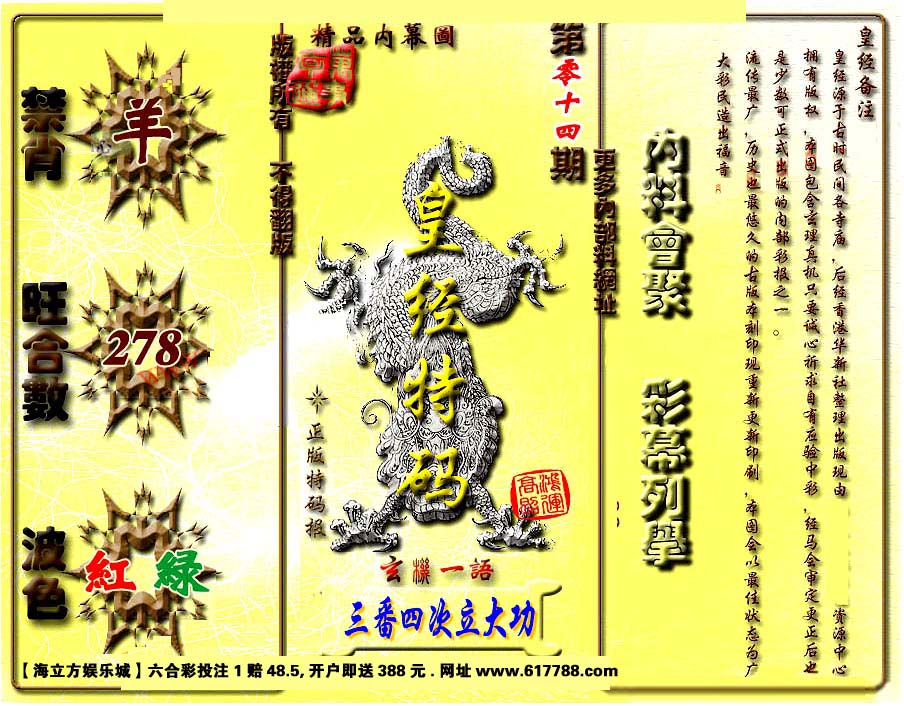 精品内幕圖
版權所有 不得翻版
第零十四期
更多內部料網址
禁肖
羊
旺合數
278
波色
紅 綠
皇经特码
正版特码报
鴻運高照
玄機一語
三番四次立大功
內料會聚 彩幕列舉
皇经备注
皇经源于古时民间各寺庙，后经香港华新社整理出版现由 资源中心
拥有版权，本图包含玄理真机只要诚心祈求自有应验中彩，经马会审定更正后也
是少数可正式出版的内部彩报之一。
流传最广，历史也最悠久的古版本刻印现重新更新印刷，本图会以最佳状态为广
大彩民造出福音
【海立方娱乐城】六合彩投注 1 赔 48.5, 开户即送 388 元 . 网址 www.617788.com